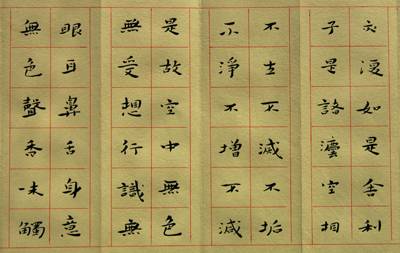 亦復如是舍利
子是諸灋空相
不生不滅不垢
不淨不增不減
是故空中無色
無受想行識無
眼耳鼻舌身意
無色聲香味觸